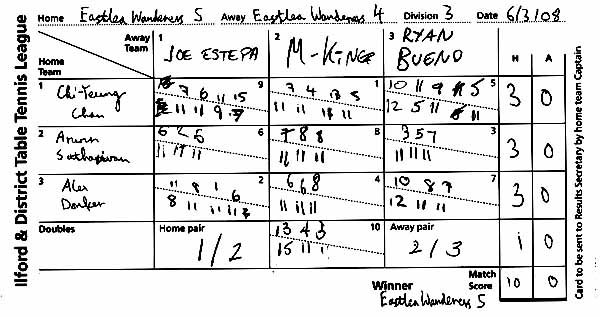 Ilford & District Table Tennis League
Home Eastlea Wanderers 5 Away Eastlea Wanderers 4 Division 3 Date 6/3/08
Home Team Away Team 1 JOE ESTEPA 2 M-KINGE 3 RYAN BUENO H A
1 Chi-Teung Chan 9 1 5 3 0
7 6 11 15
11 11 9
3 4 13 5
11 11 11
10 11 9 5
12 5 11 11
2 6 8 3 3 0
6 2 6
11 11
7 8 8
11 11 11
3 5 7
11 11 11
3 Alex 2 4 7 3 0
11 9 1 6
8 11 11 11
6 6 8
11 11 11
10 8 9
12 11 11
Doubles Home pair 1/2 10 Away pair 2/3 1 0
13 4 3
15 11 11
Winner Eastlea Wanderers 5 Match Score 10 0
Card to be sent to Results Secretary by home team Captain